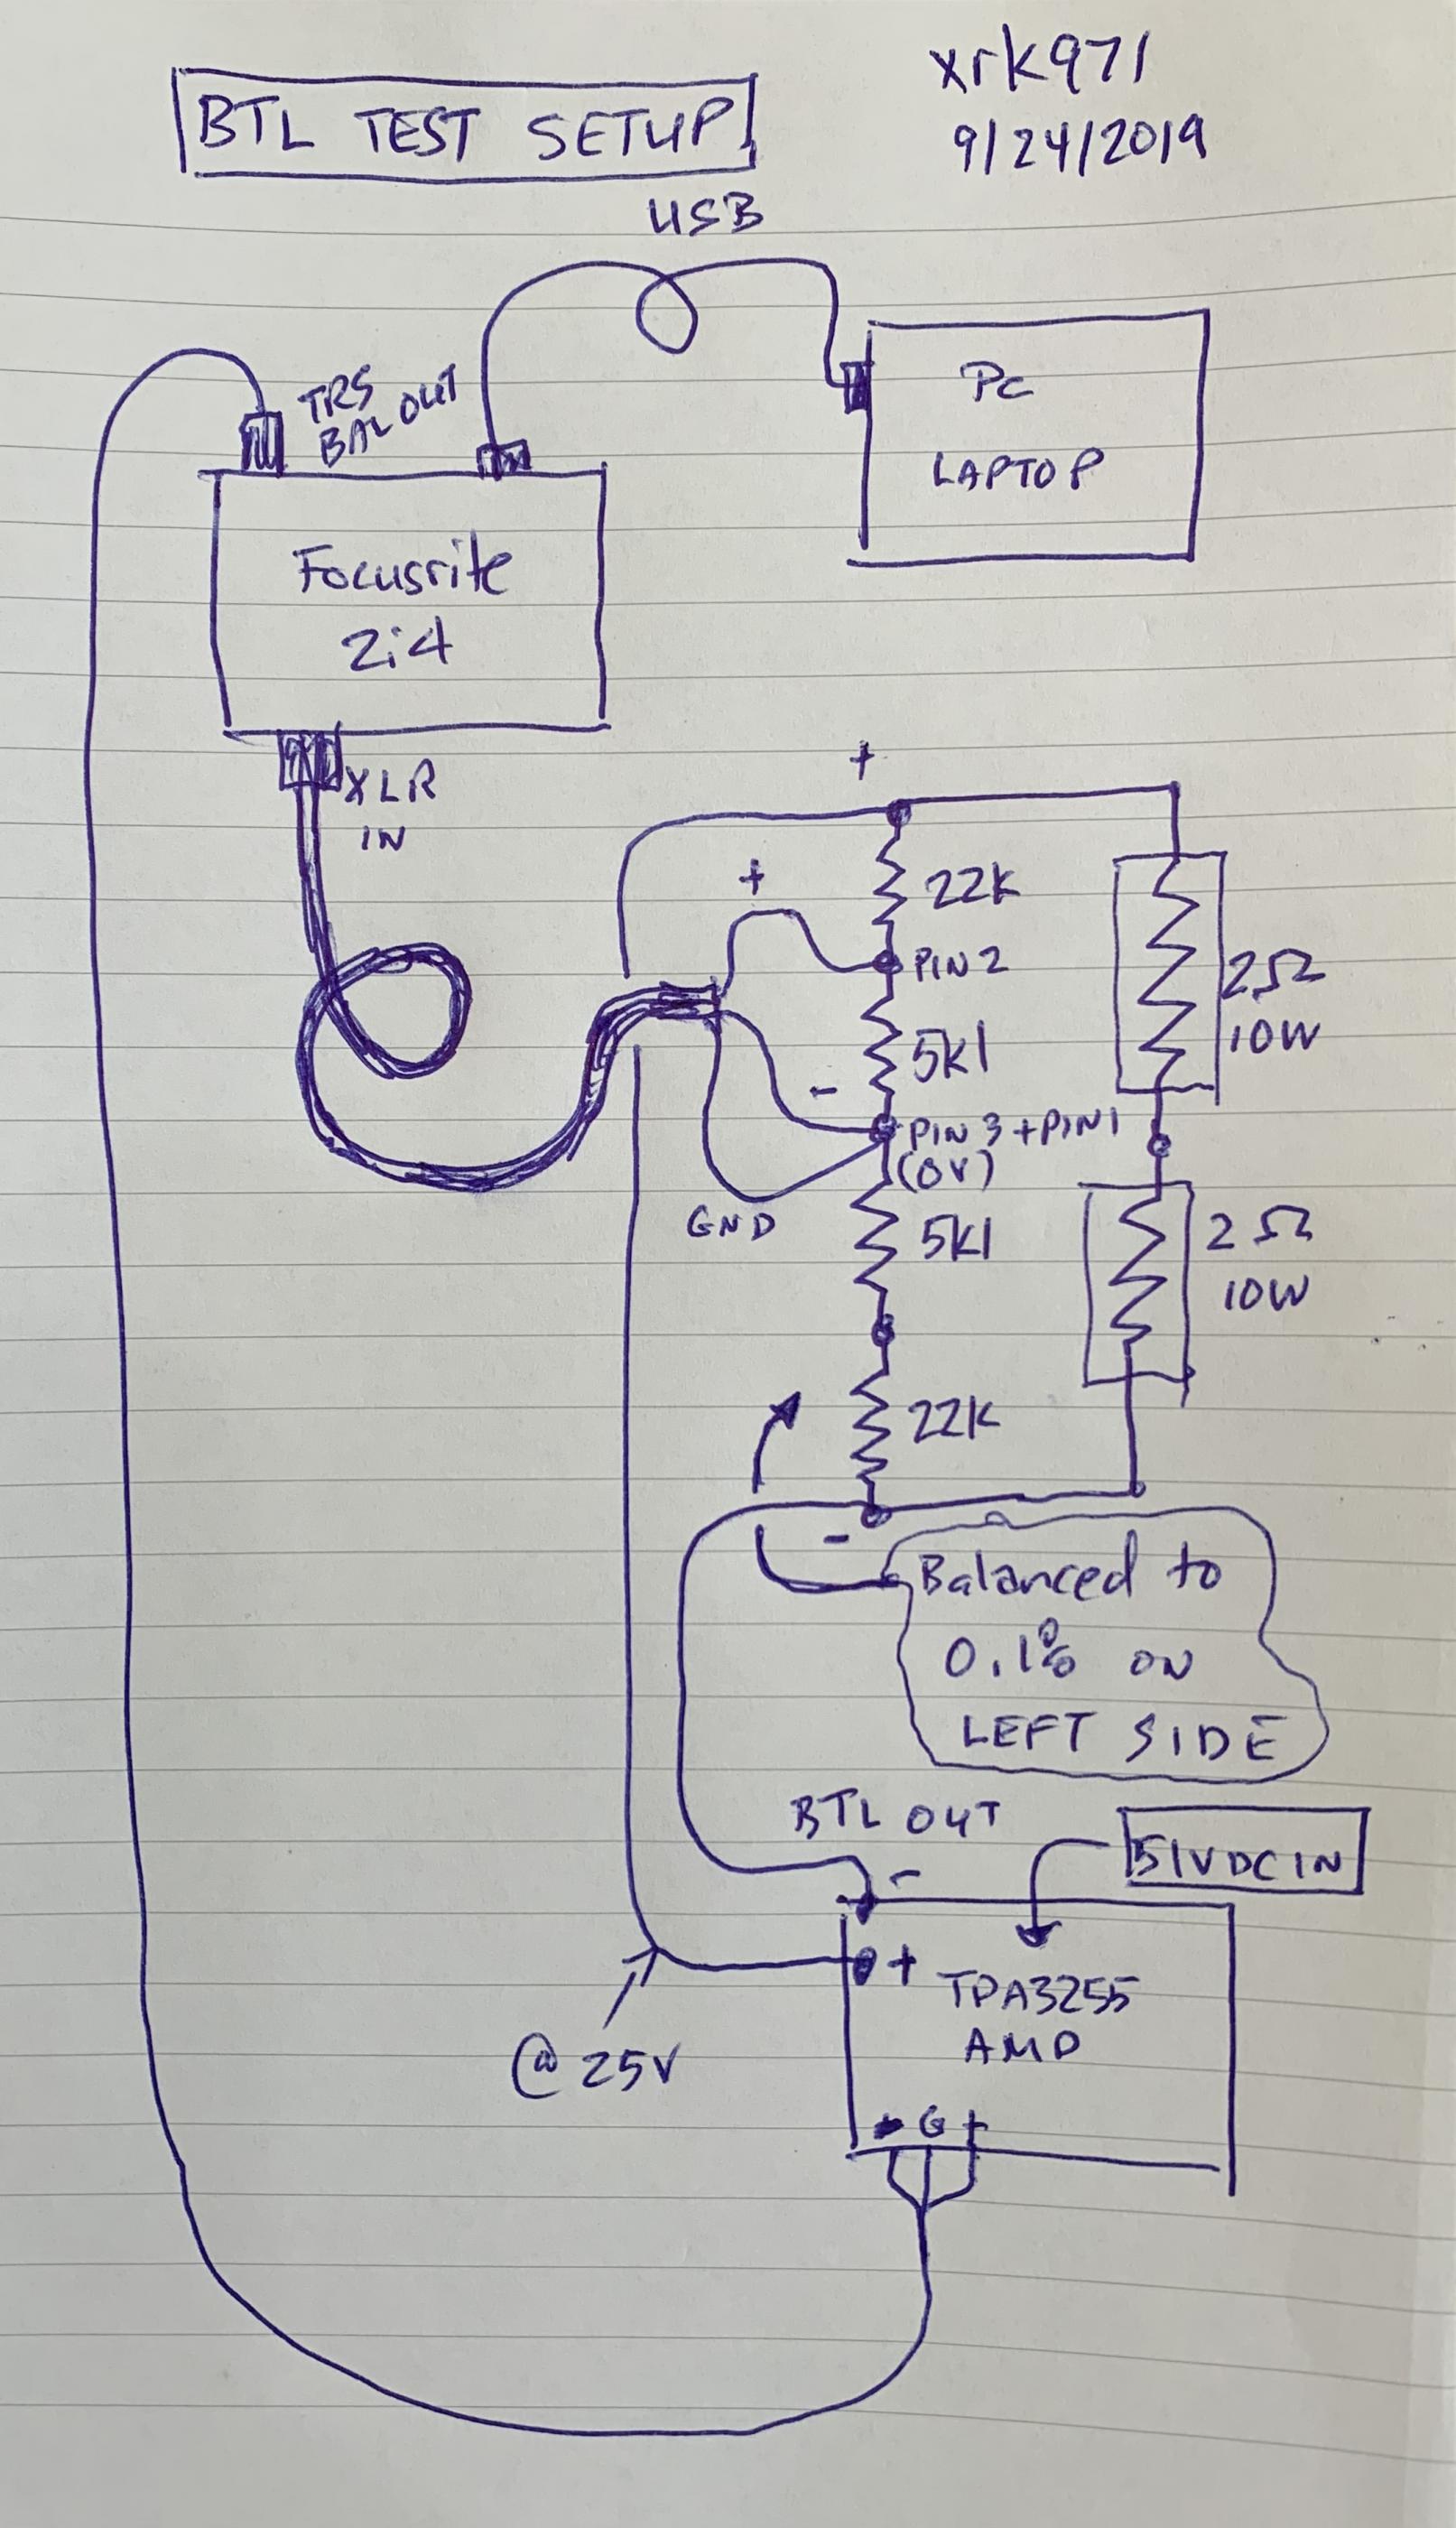 BTL TEST SETUP
xrk971
9/24/2019
USB
TRS
BAL OUT
PC
LAPTOP
Focusrite
2i4
XLR
IN
+
22K
+
PIN2
2Ω
10W
5K1
-
PIN 3 + PIN1
(0V)
GND
5K1
2Ω
10W
22K
-
Balanced to
0.1% ON
LEFT SIDE
BTL OUT
51VDC IN
-
+
TPA3255
AMP
@ 25V
- G +